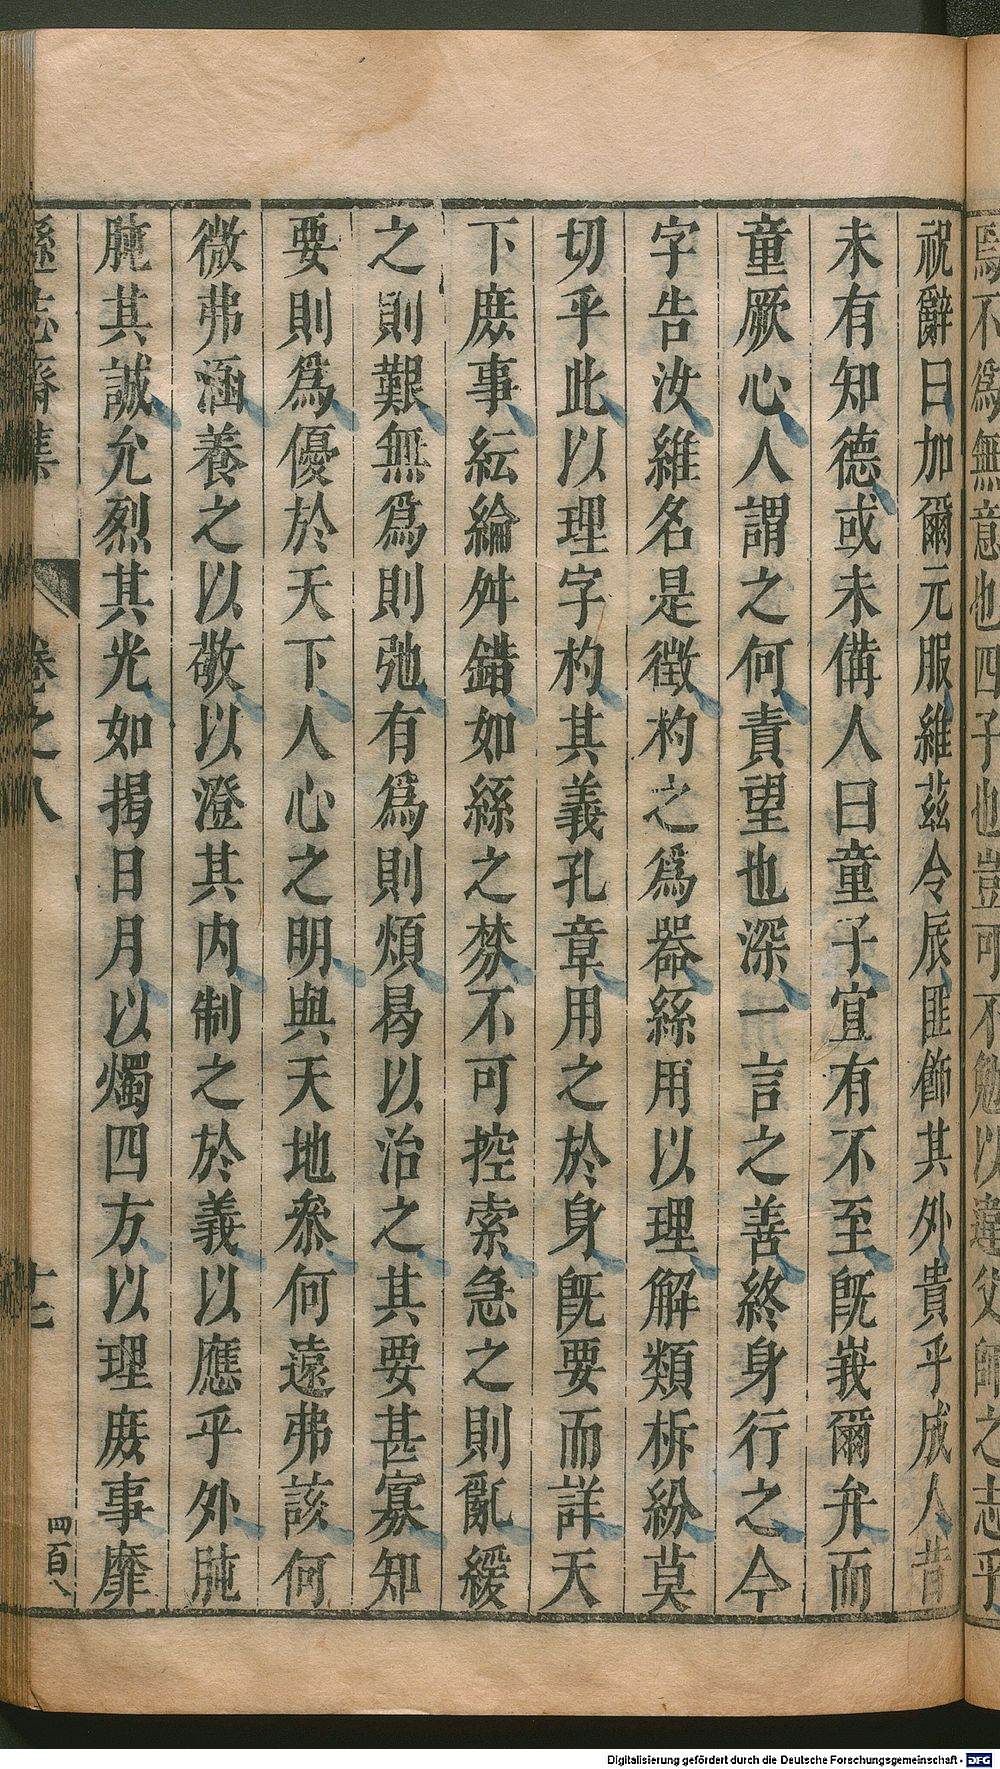 焉不爲無意也四子也豈可不勉以違父師之志乎
祝辭曰加爾元服維茲令辰匪飾其外貴乎成人昔
未有知德或未備人曰童子宜有不至旣峩爾弁而
童厥心人謂之何責望也深一言之善終身行之今
字告汝維名是徵杓之爲器絲用以理解類柝紛莫
切乎此以理字杓其義孔章用之於身旣要而詳天
下庶事紜綸舛錯如絲之棼不可控索急之則亂緩
之則艱無爲則弛有爲則煩曷以治之其要甚寡知
要則爲優於天下人心之明與天地叅何遠弗該何
微弗涵養之以敬以澄其内制之於義以應乎外肫
肫其誠允烈其光如揭日月以燭四方以理庶事靡
遜志齋集
卷之八
十三
四百八
Digitalisierung gefördert durch die Deutsche Forschungsgemeinschaft - DFG